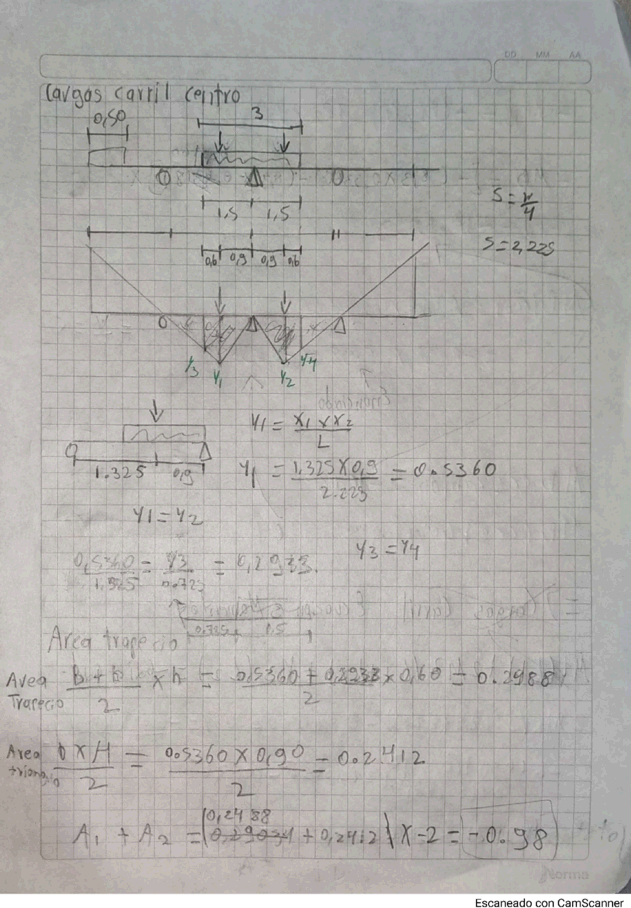 DD MM AA
Cargas carril centro
3
0,50
1,5 1,5
S = W/4
S = 2,225
0,6 0,9 0,9 0,6
Y3 Y1 Y2 Y4
Y1 = X1 x X2 / L
1.325 0,9
Y1 = 1,325 x 0,9 / 2.225 = 0.5360
Y1 = Y2
Y3 = Y4
0,5360 / 1,325 = Y3 / 0.725 = 0,2933
0,725 1.5
Area trapecio
Area Trapecio B + b / 2 x h = 0.5360 + 0,2933 x 0,60 / 2 = 0.2988
Area triangulo b x H / 2 = 0.5360 x 0,90 / 2 = 0.2412
0,2488
A1 + A2 = ( + 0,2412) x -2 = -0.98
Norma
Escaneado con CamScanner